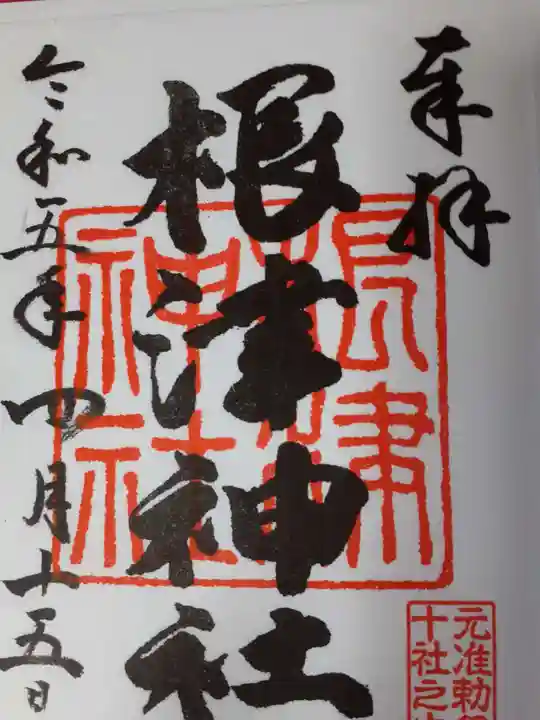 奉拝
根津神社
根津
神社
令和五年四月十五日
元准勅
十社之